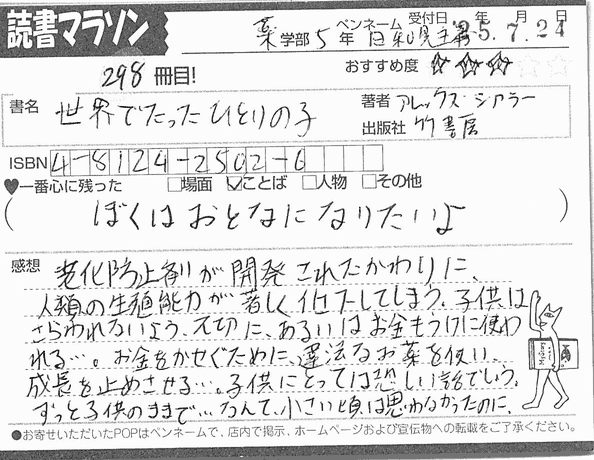 読書マラソン
薬学部5年 ペンネーム 日和見主義 受付日 '25.7.24 年 月 日
298冊目! おすすめ度 ☆☆☆☆☆
書名 世界でたったひとりの子
著者 アレックス・シアラー
出版社 竹書房
ISBN 4-8124-2502-6
♥一番心に残った □場面 ☑ことば □人物 □その他
(ぼくはおとなになりたいよ)
感想 老化防止剤が開発されたかわりに、
人類の生殖能力が著しく低下してしまう。子供は
さらわれないよう、大切に、あるいはお金もうけに使わ
れる…。お金をかせぐために、違法なお薬を使い、
成長を止めさせる…。子供にとっては恐しい話でしょう。
ずっと子供のままで…なんて、小さい頃は思わなかったのに。
●お寄せいただいたPOPはペンネームで、店内で掲示、ホームページおよび宣伝物への転載をご了承ください。